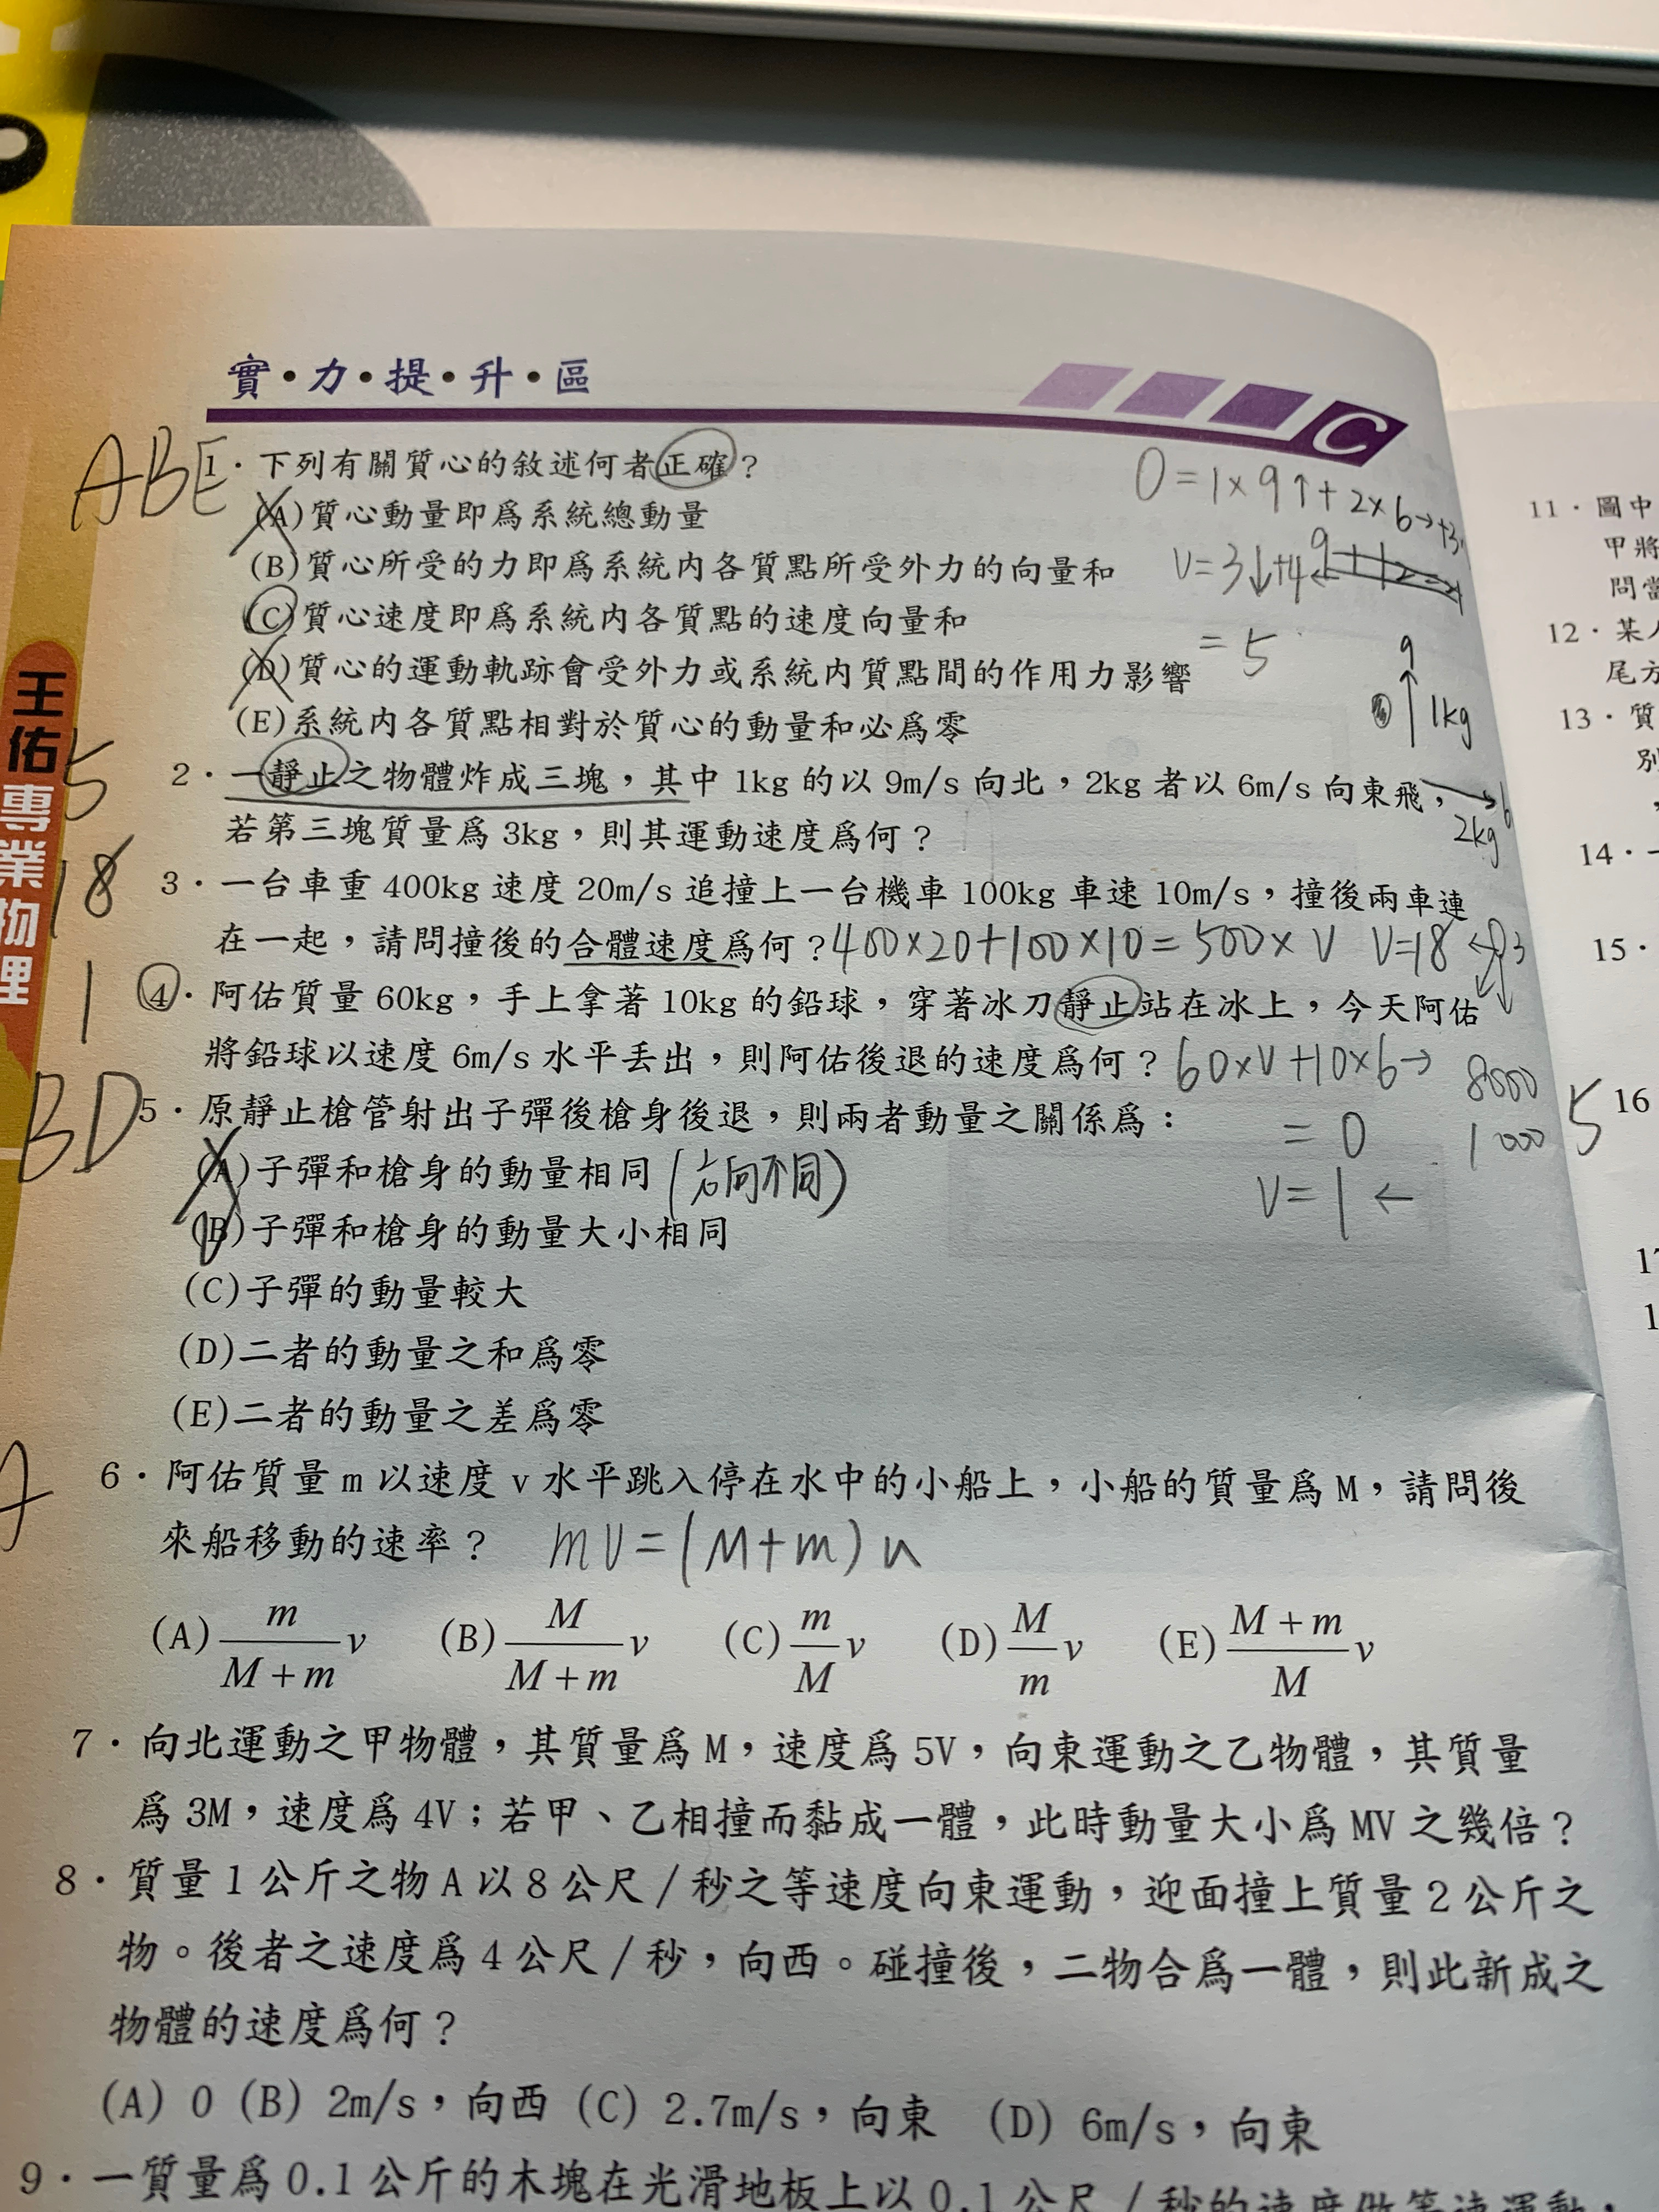 實·力·提·升·區
C
ABE
1·下列有關質心的敘述何者正確?
(A)質心動量即爲系統總動量
(B)質心所受的力即爲系統內各質點所受外力的向量和
(C)質心速度即爲系統內各質點的速度向量和
(D)質心的運動軌跡會受外力或系統內質點間的作用力影響
(E)系統內各質點相對於質心的動量和必爲零
0=1×9↑+2×6→+3
V=3↓+4←
=5
9
1kg
5
2·一靜止之物體炸成三塊,其中 1kg 的以 9m/s 向北,2kg 者以 6m/s 向東飛,
若第三塊質量爲 3kg,則其運動速度爲何?
6
2kg
18
3·一台車重 400kg 速度 20m/s 追撞上一台機車 100kg 車速 10m/s,撞後兩車連
在一起,請問撞後的合體速度爲何?400×20+100×10=500×V V=18
3
1
4·阿佑質量 60kg,手上拿著 10kg 的鉛球,穿著冰刀靜止站在冰上,今天阿佑
將鉛球以速度 6m/s 水平丟出,則阿佑後退的速度爲何?60×V+10×6→
=0
V=1←
8000
1000
5
BD
5·原靜止槍管射出子彈後槍身後退,則兩者動量之關係爲:
(A)子彈和槍身的動量相同(方向不同)
(B)子彈和槍身的動量大小相同
(C)子彈的動量較大
(D)二者的動量之和爲零
(E)二者的動量之差爲零
A
6·阿佑質量 m 以速度 v 水平跳入停在水中的小船上,小船的質量爲 M,請問後
來船移動的速率? mV=(M+m)u
(A) m/(M+m) v (B) M/(M+m) v (C) m/M v (D) M/m v (E) (M+m)/M v
7·向北運動之甲物體,其質量爲 M,速度爲 5V,向東運動之乙物體,其質量
爲 3M,速度爲 4V;若甲、乙相撞而黏成一體,此時動量大小爲 MV 之幾倍?
8·質量 1 公斤之物 A 以 8 公尺/秒之等速度向東運動,迎面撞上質量 2 公斤之
物。後者之速度爲 4 公尺/秒,向西。碰撞後,二物合爲一體,則此新成之
物體的速度爲何?
(A) 0 (B) 2m/s,向西 (C) 2.7m/s,向東 (D) 6m/s,向東
9·一質量爲 0.1 公斤的木塊在光滑地板上以 0.1 公尺/秒的速度做等速運動,
王佑專業物理
11·圖中
甲將
問當
12·某人
尾方
13·質
別
14·一
15·
16
17
1